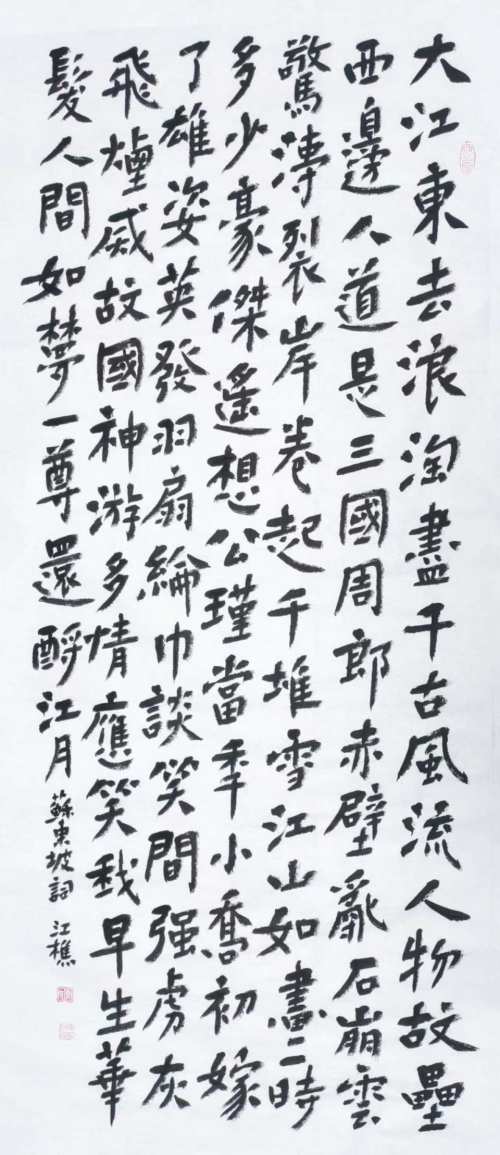 大江東去浪淘盡千古風流人物故壘
西邊人道是三國周郎赤壁亂石崩雲
驚濤裂岸卷起千堆雪江山如畫一時
多少豪傑遙想公瑾當秊小喬初嫁
了雄姿英發羽扇綸巾談笑間强虜灰
飛煙滅故國神游多情應笑我早生華
髮人間如夢一尊還酹江月
蘇東坡詞 江樵